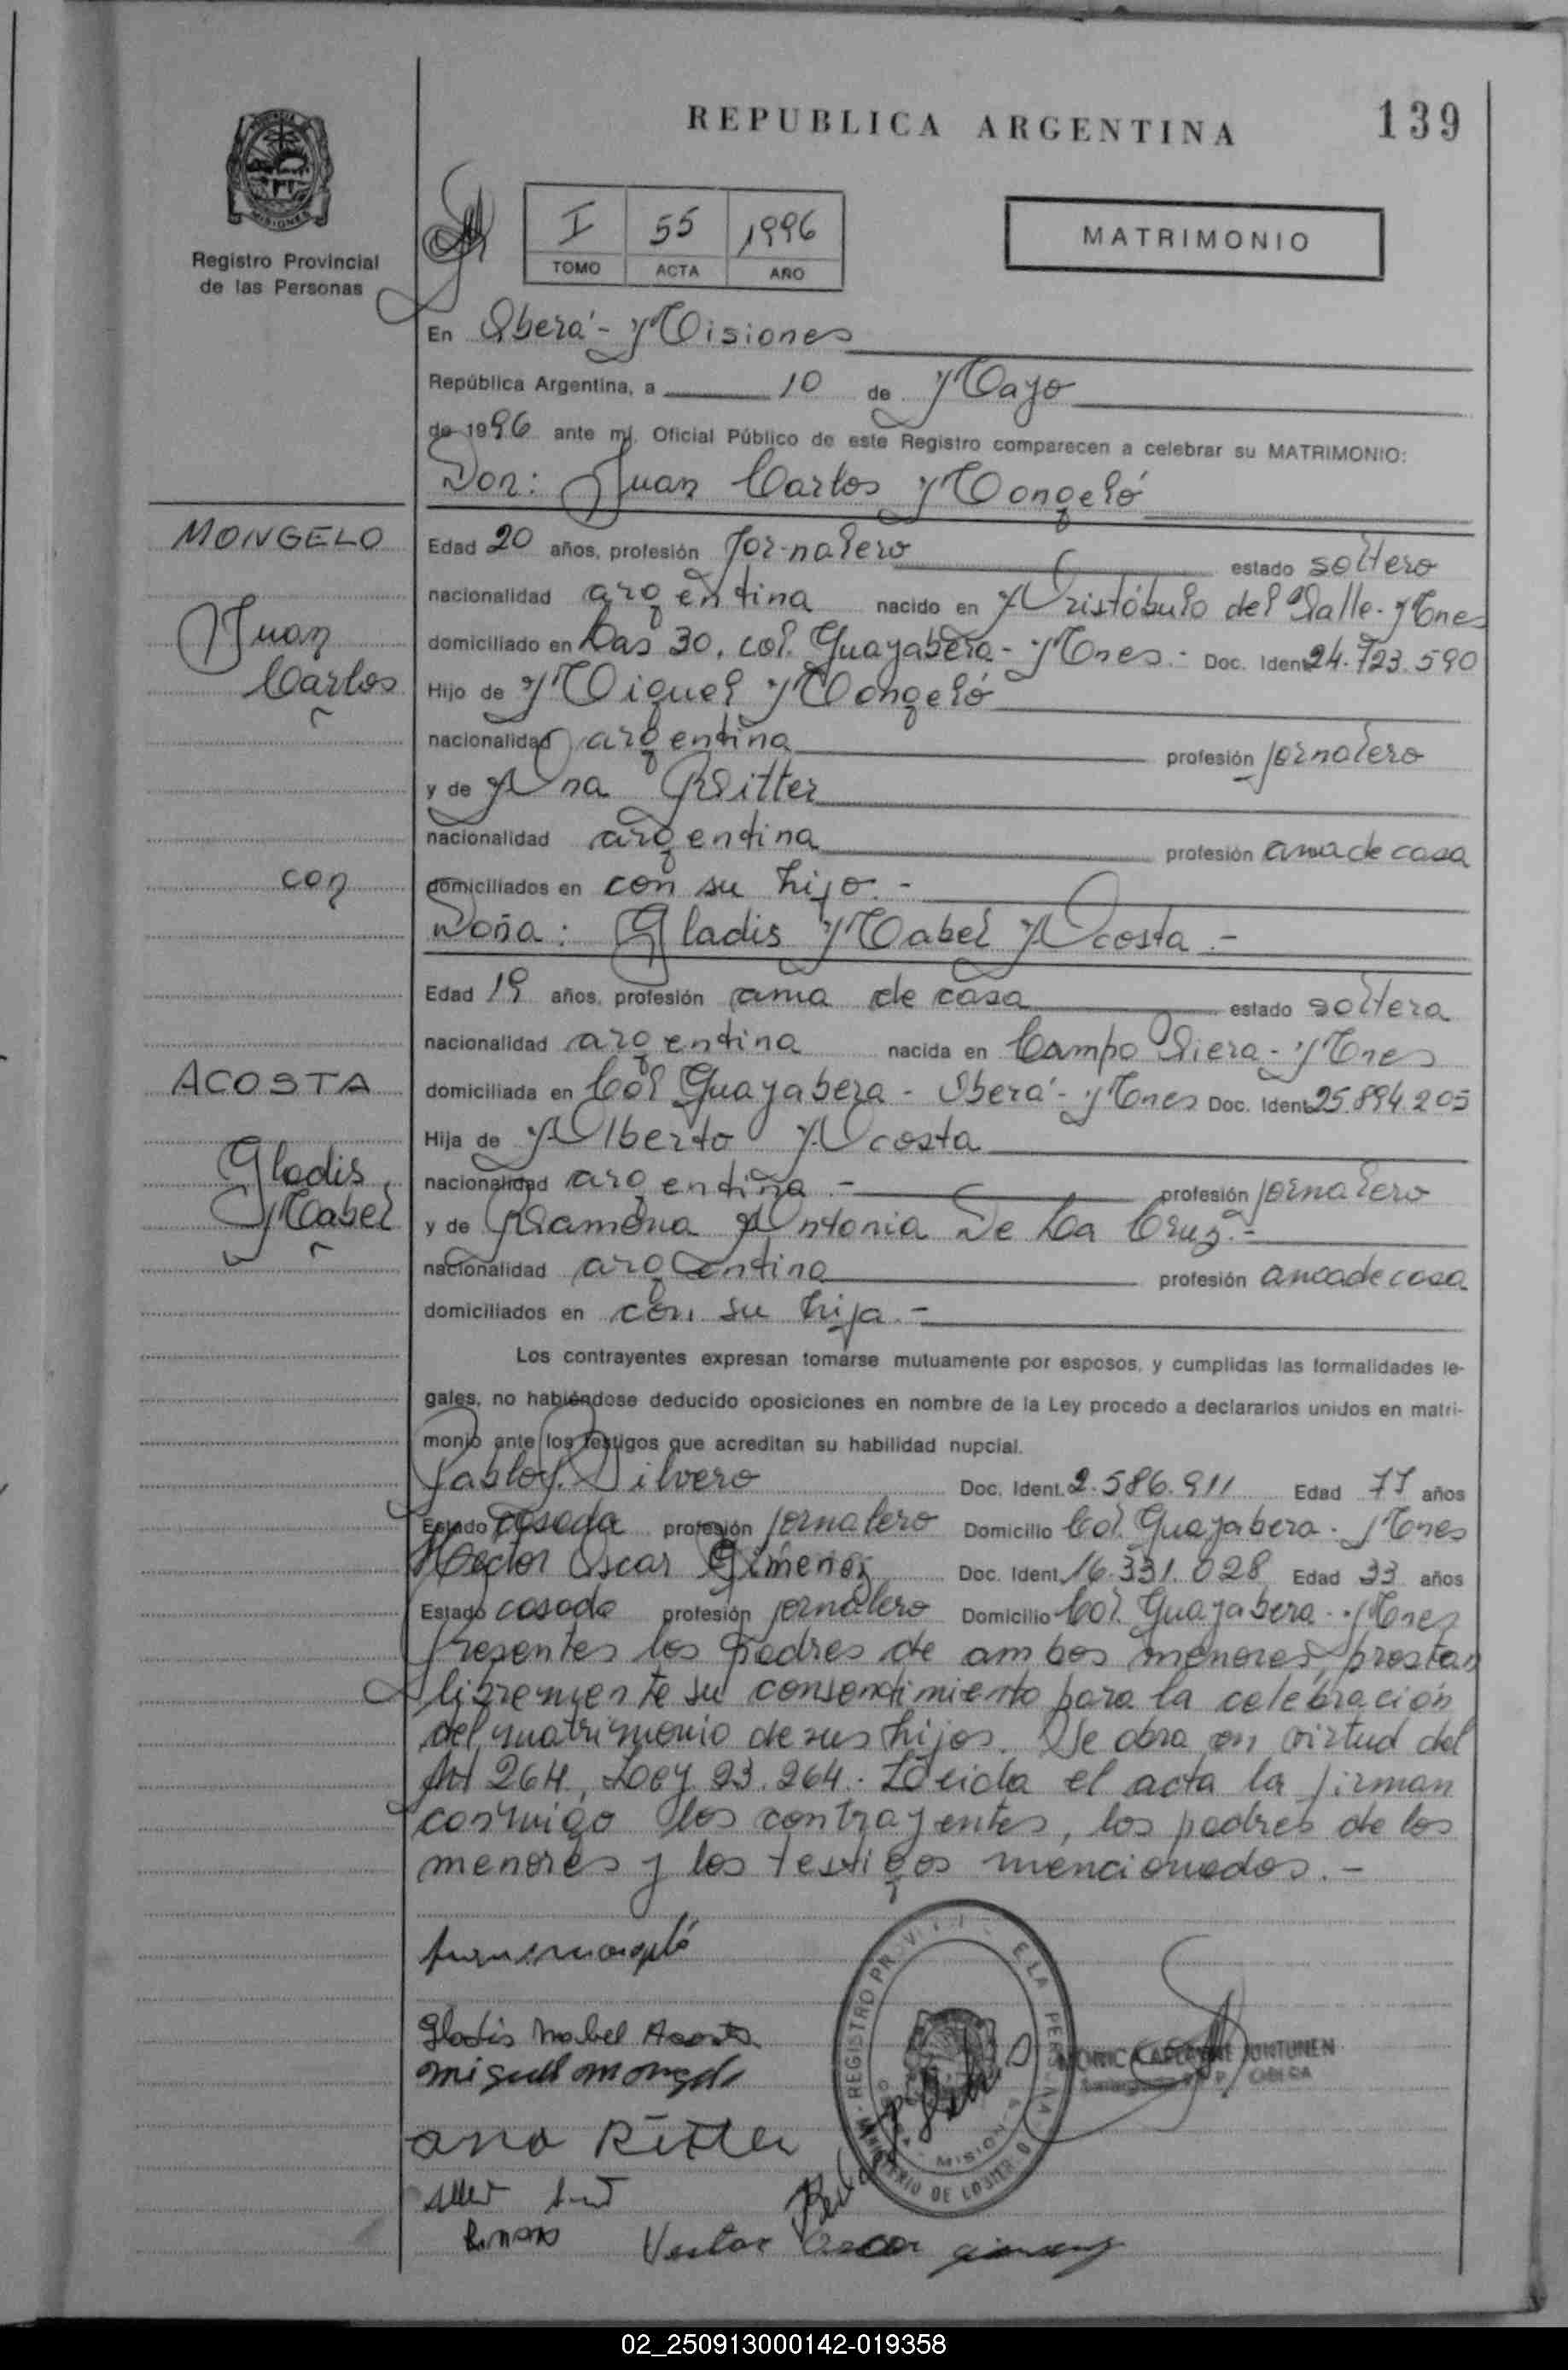 REPUBLICA ARGENTINA
139
MISIONES
Registro Provincial
de las Personas
I 55 1996
TOMO ACTA AÑO
MATRIMONIO
En Oberá - Misiones
República Argentina, a 10 de Mayo
de 1996 ante mí, Oficial Público de este Registro comparecen a celebrar su MATRIMONIO:
Don: Juan Carlos Mongeló
MONGELO
Juan
Carlos
con
ACOSTA
Gladis
Mabel
Edad 20 años, profesión Jornalero estado soltero
nacionalidad argentina nacido en Aristóbulo del Valle - Mnes
domiciliado en Las 30. col. Guayabera - Mnes. - Doc. Ident. 24.723.590
Hijo de Miguel Mongeló
nacionalidad argentina profesión jornalero
y de Ana Ritter
nacionalidad argentina profesión ama de casa
domiciliados en con su hijo. -
Doña: Gladis Mabel Acosta. -
Edad 19 años, profesión ama de casa estado soltera
nacionalidad argentina nacida en Campo Viera - Mnes
domiciliada en Col Guayabera - Oberá - Mnes Doc. Ident. 25.894.205
Hija de Alberto Acosta
nacionalidad argentina. - profesión jornalero
y de Ramona Antonia De La Cruz. -
nacionalidad argentina profesión ama de casa
domiciliados en con su hija. -
Los contrayentes expresan tomarse mutuamente por esposos, y cumplidas las formalidades le-
gales, no habiéndose deducido oposiciones en nombre de la Ley procedo a declararlos unidos en matri-
monio ante los testigos que acreditan su habilidad nupcial.
Pablo Silvero Doc. Ident. 2.586.911 Edad 77 años
Estado casado profesión jornalero Domicilio Col. Guayabera. Mnes
Hector Oscar Gimenez Doc. Ident. 16.331.028 Edad 33 años
Estado casado profesión jornalero Domicilio Col. Guayabera - Mnes
Presentes los padres de ambos menores, prestan
libremente su consentimiento para la celebración
del matrimonio de sus hijos. Se obra en virtud del
Art 264, Ley 23.264. Leida el acta la firman
conmigo los contrayentes, los padres de los
menores y los testigos mencionados. -
Gladis Mabel Acosta
miguel mongelo
ana Ritter
REGISTRO PERSONAS
MINISTERIO DE
JUNTUNEN
02_250913000142-019358